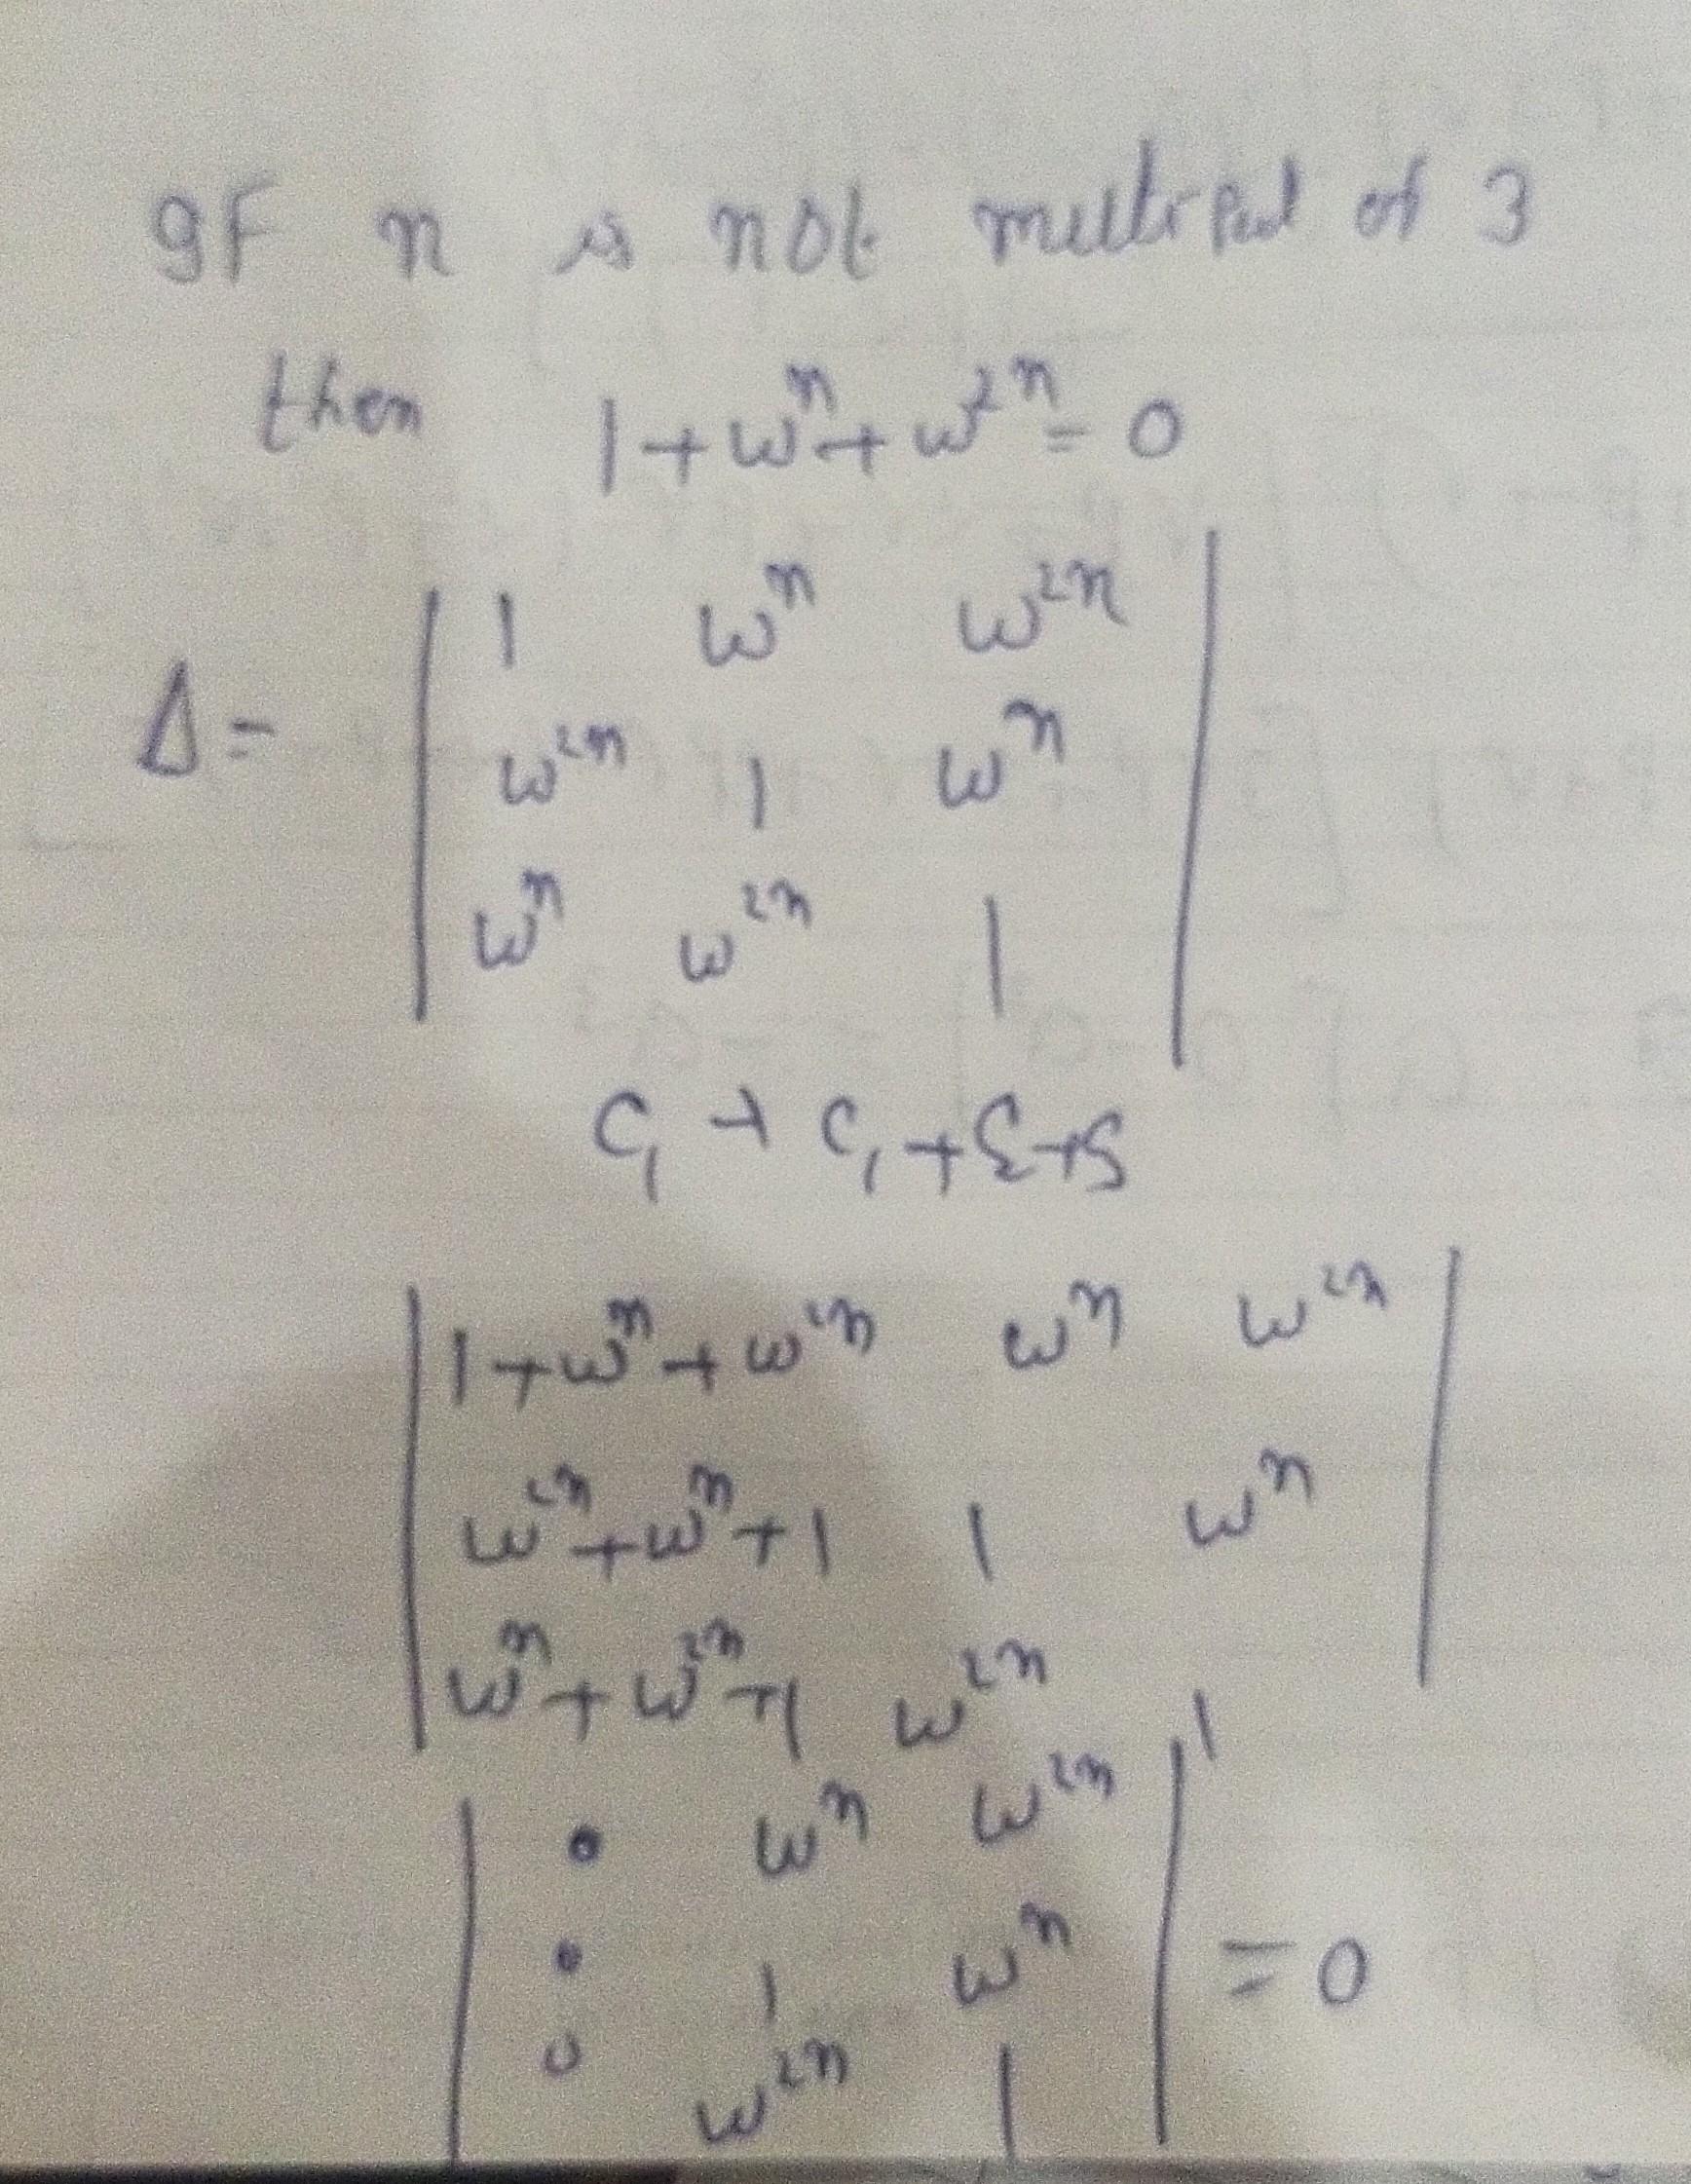 If n is not multipal of 3
then 1+ω^n+ω^2n=0
Δ= | 1 ω^n ω^2n |
| ω^2n 1 ω^n |
| ω^n ω^2n 1 |
C1 → C1+C2+C3
| 1+ω^n+ω^2n ω^n ω^2n |
| ω^2n+ω^n+1 1 ω^n |
| ω^n+ω^2n+1 ω^2n 1 |
| 0 ω^n ω^2n |
| 0 1 ω^n | =0
| 0 ω^2n 1 |